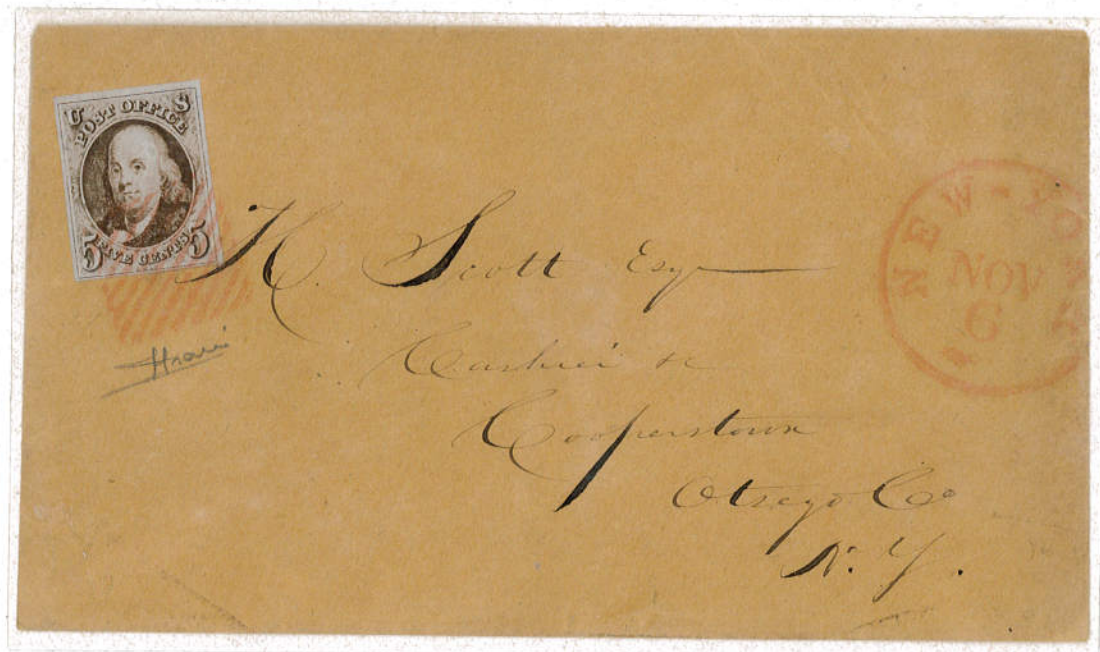 U S
POST OFFICE
5 FIVE CENTS 5
NEW-YORK
NOV
6
H. Scott Esqr
Cashier &c
Cooperstown
Otsego Co
N. Y.